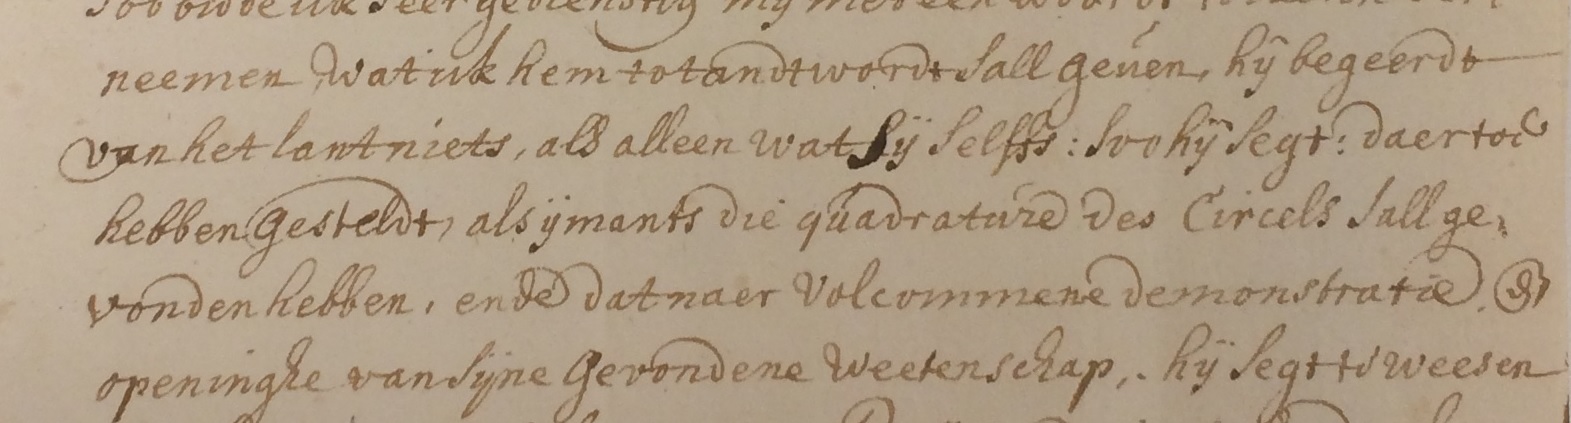 neemen wat ick hem tot andtwordt sall geven, hÿ begeerdt
van het lant niets, als alleen wat sÿ selffs: soo hÿ segt: daer toe
hebben gesteldt, als ÿmants die quadratúre des Circels sall ge„
vonden hebben, ende dat naer volcommene demonstratie &
openinghe van sijne gevondene weetenschap, hÿ segt ts weesen